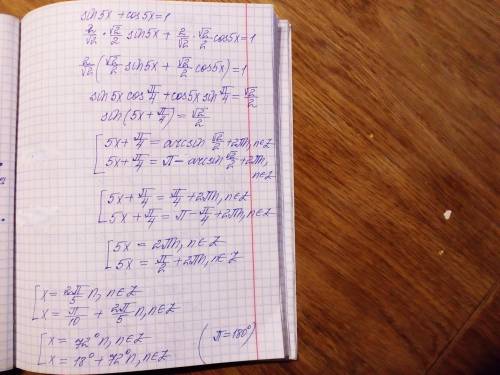 sin5x + cos5x = 1
2/√2 · √2/2 sin5x + 2/√2 · √2/2 cos5x = 1
2/√2 (√2/2 sin5x + √2/2 cos5x) = 1
sin5x cos π/4 + cos5x sin π/4 = √2/2
sin(5x + π/4) = √2/2
[ 5x + π/4 = arcsin √2/2 + 2πn, n∈Z
5x + π/4 = π - arcsin √2/2 + 2πn, n∈Z
[ 5x + π/4 = π/4 + 2πn, n∈Z
5x + π/4 = π - π/4 + 2πn, n∈Z
[ 5x = 2πn, n∈Z
5x = π/2 + 2πn, n∈Z
[ x = 2π/5 n, n∈Z
x = π/10 + 2π/5 n, n∈Z
[ x = 72°n, n∈Z
x = 18° + 72°n, n∈Z (π = 180°)